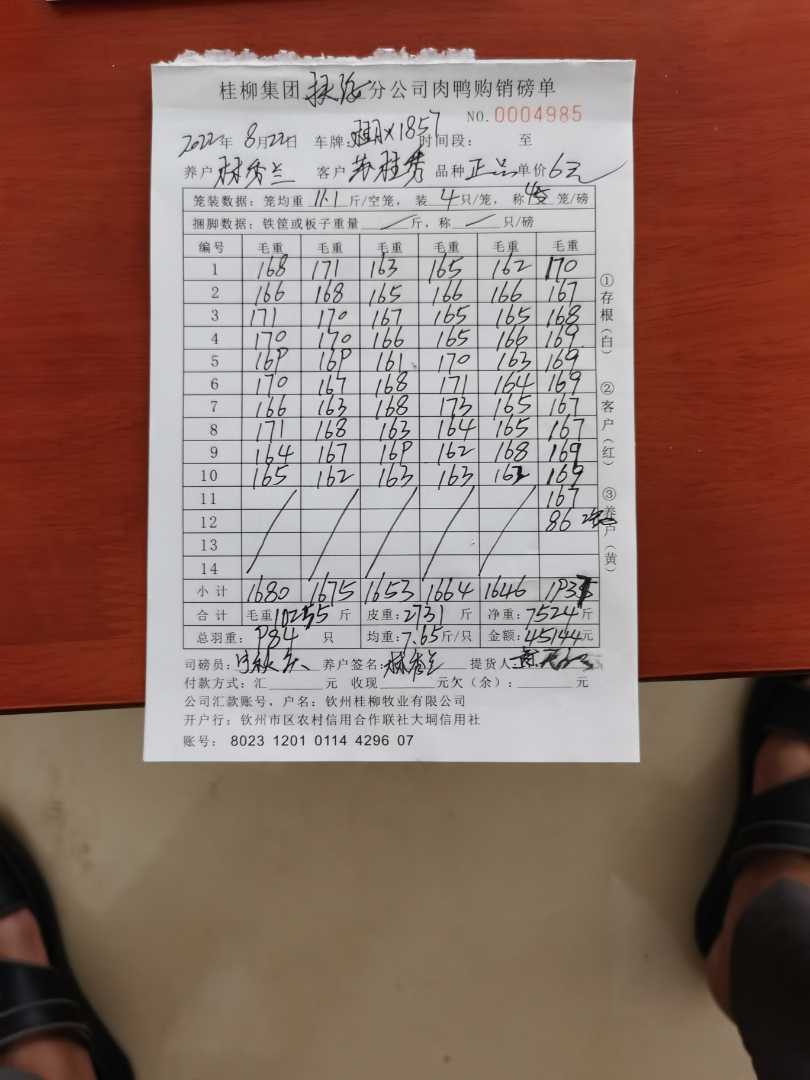 桂柳集团 分公司肉鸭购销磅单
NO.0004985
2022年 8月22日 车牌: X1857 时间段: 至
养户 林秀兰 客户 桂秀 品种 正品 单价 6元
笼装数据: 笼均重 11.1 斤/空笼, 装 4 只/笼, 称 笼/磅
捆脚数据: 铁筐或板子重量 / 斤, 称 / 只/磅
编号 毛重 毛重 毛重 毛重 毛重 毛重
1 168 171 163 165 162 170
2 166 168 165 166 166 167
3 171 170 167 165 165 168
4 170 170 166 165 166 169
5 169 169 161 170 163 169
6 170 167 168 171 164 169
7 166 163 168 173 165 167
8 171 168 163 164 165 167
9 164 167 169 162 168 169
10 165 162 163 163 162 169
11 167
12 86
13
14
小计 1680 1675 1653 1664 1646
合计 毛重: 10255 斤 皮重: 2731 斤 净重: 7524 斤
总羽重: 984 只 均重: 7.65 斤/只 金额: 45144 元
司磅员: 养户签名: 林秀兰 提货人:
付款方式: 汇 元 收现 元欠(余): 元
公司汇款账号, 户名: 钦州桂柳牧业有限公司
开户行: 钦州市区农村信用合作联社大垌信用社
账号: 8023 1201 0114 4296 07
①存根(白)
②客户(红)
③养户(黄)